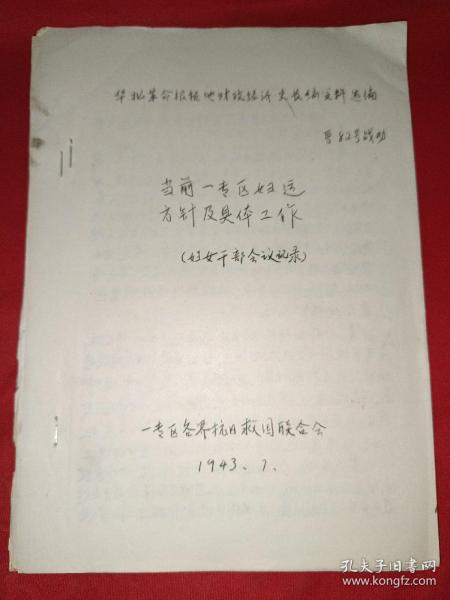 华北革命根据地财政经济史长编资料选编
晋82号战动
当前一专区妇运
方针及具体工作
(妇女干部会议记录)
一专区各界抗日救国联合会
1943.7.
孔夫子旧书网
www.kongfz.com